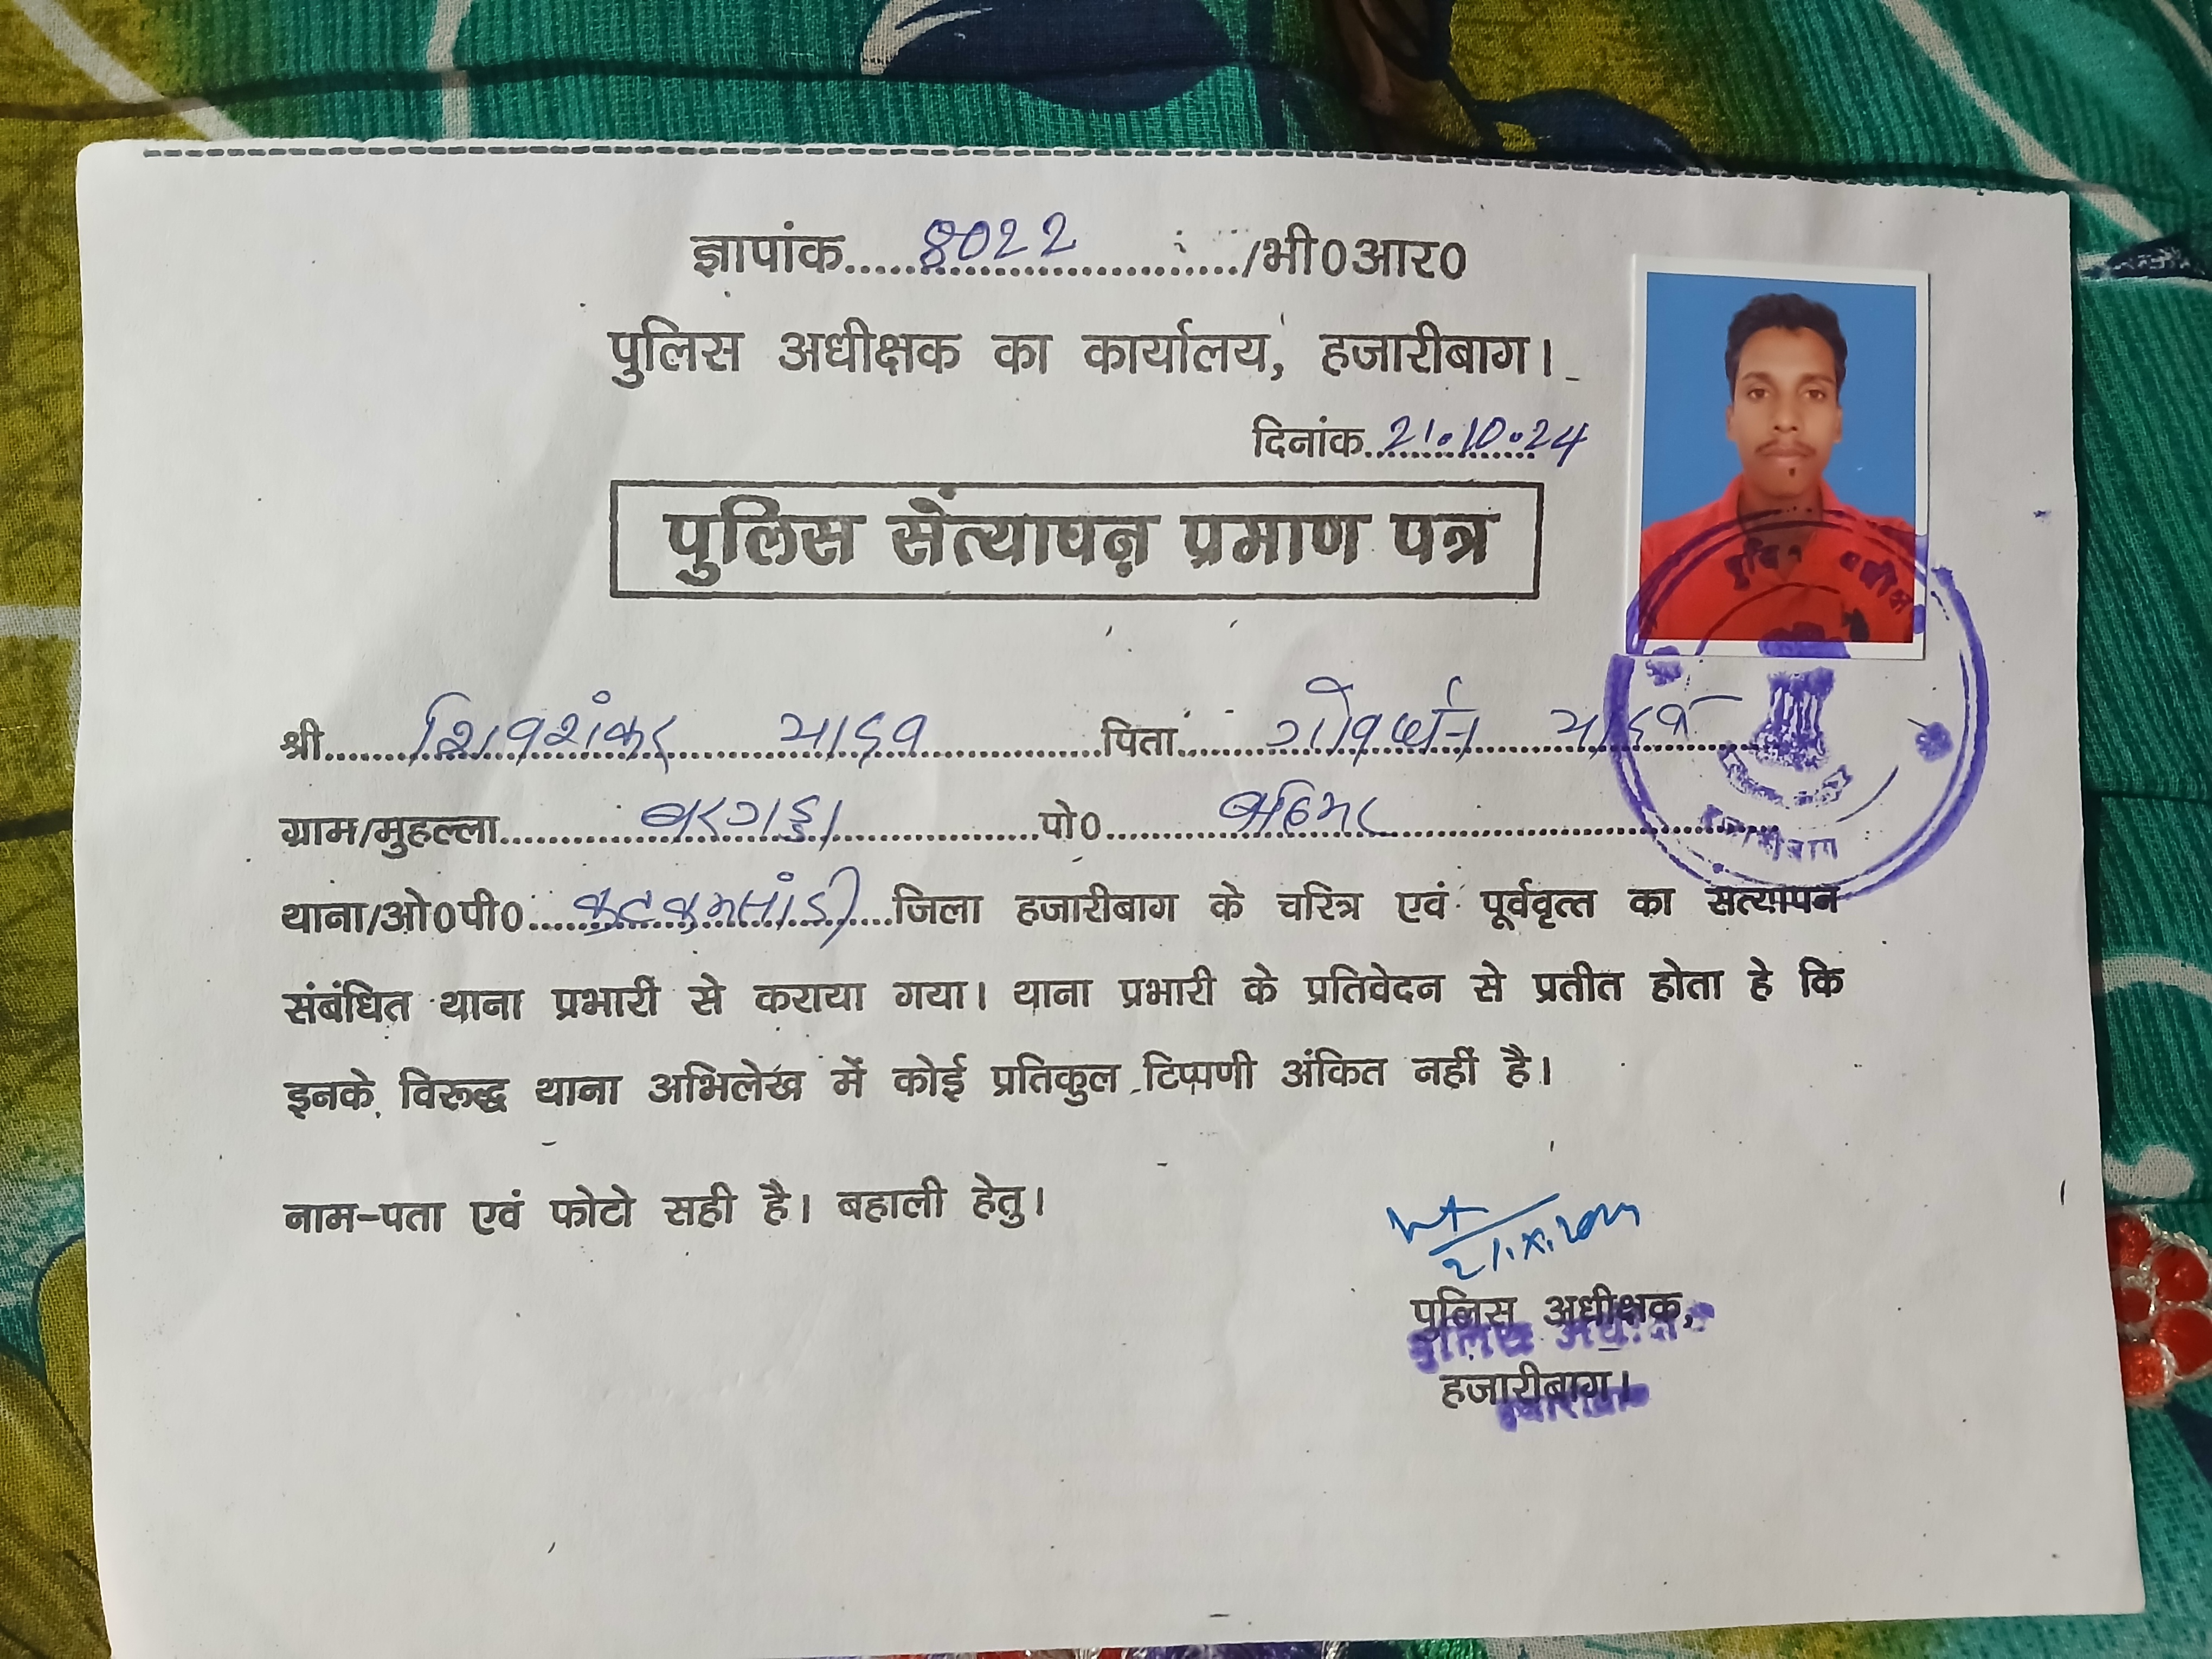 ज्ञापांक......8022....../भी0आर0
पुलिस अधीक्षक का कार्यालय, हजारीबाग।
दिनांक 21.10.24
पुलिस सेंत्यापन प्रमाण पत्र
श्री......शिवशंकर यादव......पिता......गोवर्धन यादव......
ग्राम/मुहल्ला......बरगड्डा......पो0......
थाना/ओ0पी0......कटकमसांडी......जिला हजारीबाग के चरित्र एवं पूर्ववृत्त का सत्यापन
संबंधित थाना प्रभारी से कराया गया। थाना प्रभारी के प्रतिवेदन से प्रतीत होता हे कि
इनके विरूद्ध थाना अभिलेख में कोई प्रतिकुल टिप्पणी अंकित नहीं है।
नाम-पता एवं फोटो सही है। बहाली हेतु।
पुलिस अधीक्षक,
हजारीबाग।